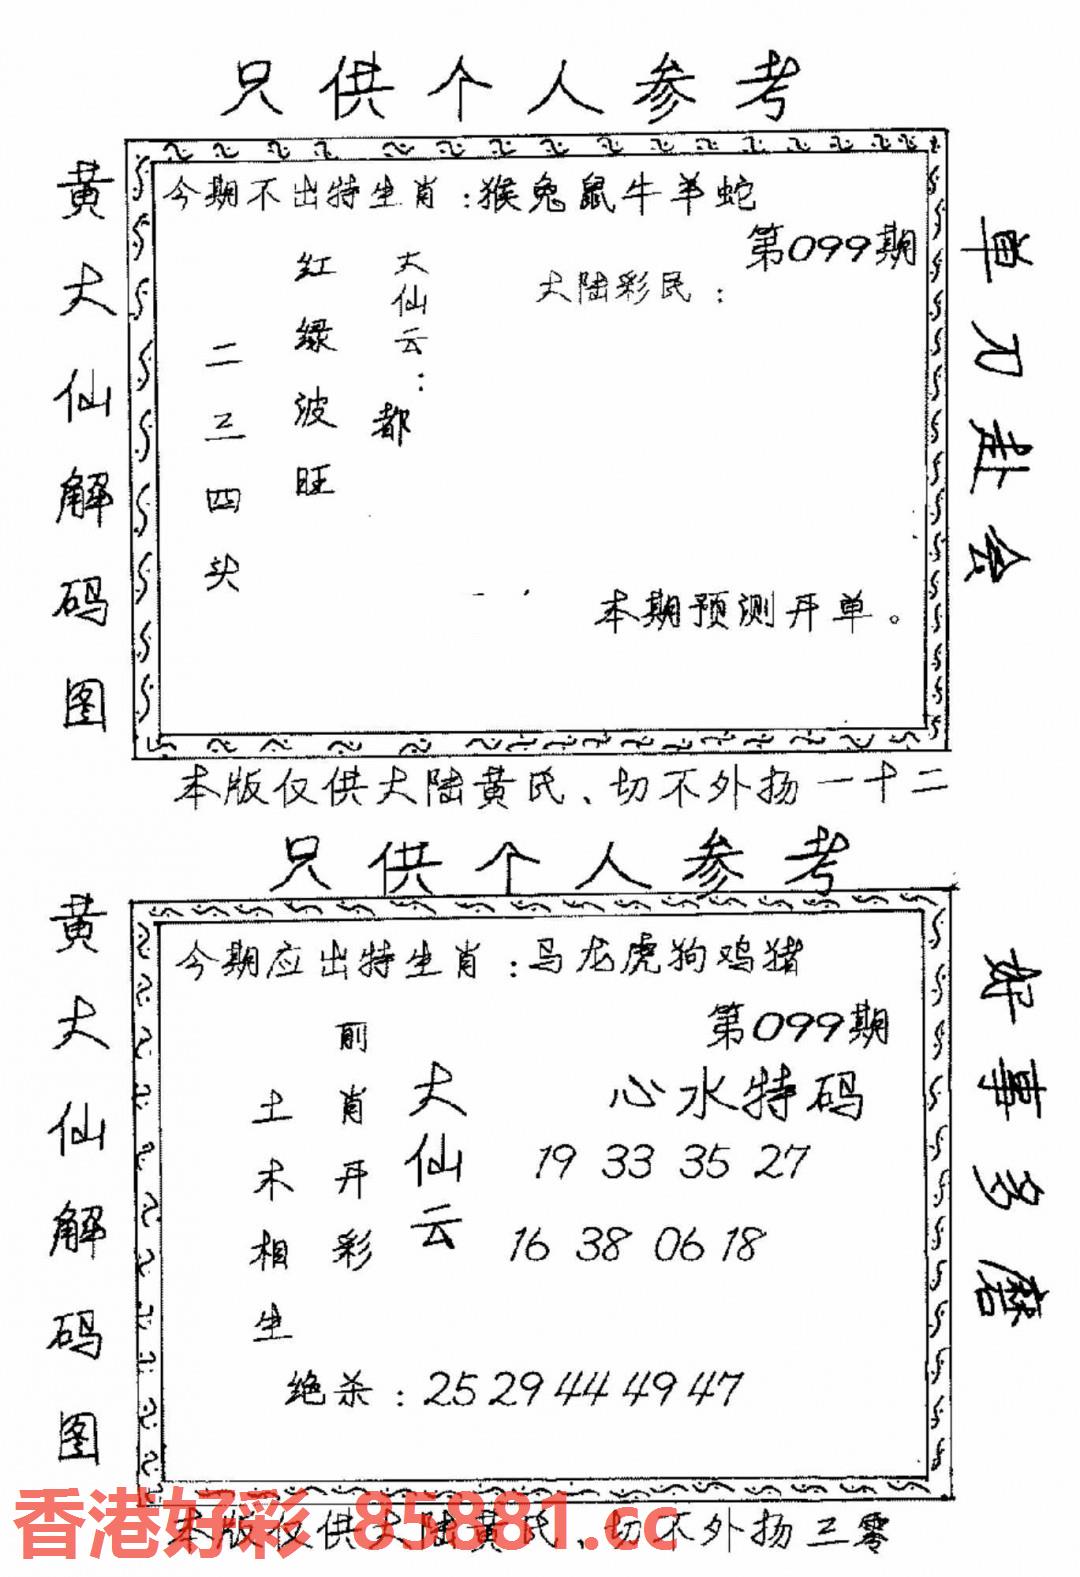 只供个人参考
黄大仙解码图
今期不出特生肖:猴兔鼠牛羊蛇
第099期
大陆彩民:
大仙云:
都
红绿波旺
二三四头
本期预测开单。
单刀赴会
本版仅供大陆黄氏、切不外扬一十二
只供个人参考
黄大仙解码图
今期应出特生肖:马龙虎狗鸡猪
第099期
心水特码
19 33 35 27
16 38 06 18
大仙云
前肖开彩
土木相生
绝杀:25 29 44 49 47
好事多磨
本版仅供大陆黄氏、切不外扬三零
香港好彩 85881.cc